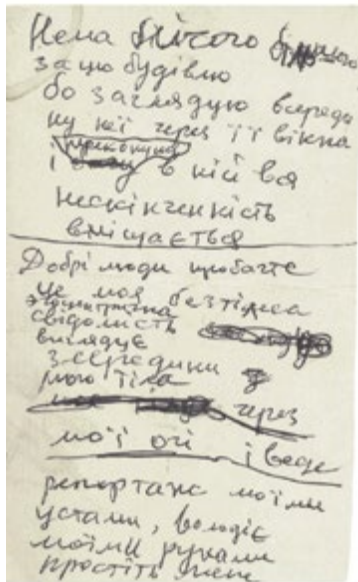 Нема нічого
за цю будівлю
бо заглядую всереди
ну неї через її вікна
і в ній вся
нескінченність
вміщається
Добрі люди пробачте
це моя
свідомість
виглядує
зсередини
мого тіла
через
мої очі і веде
репортаж моїми
устами, володіє
моїми руками
простіть мені